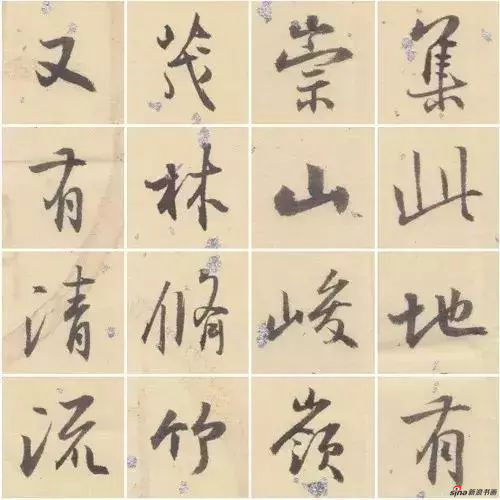 集此地有
崇山峻嶺
茂林脩竹
又有清流
sina新浪书画